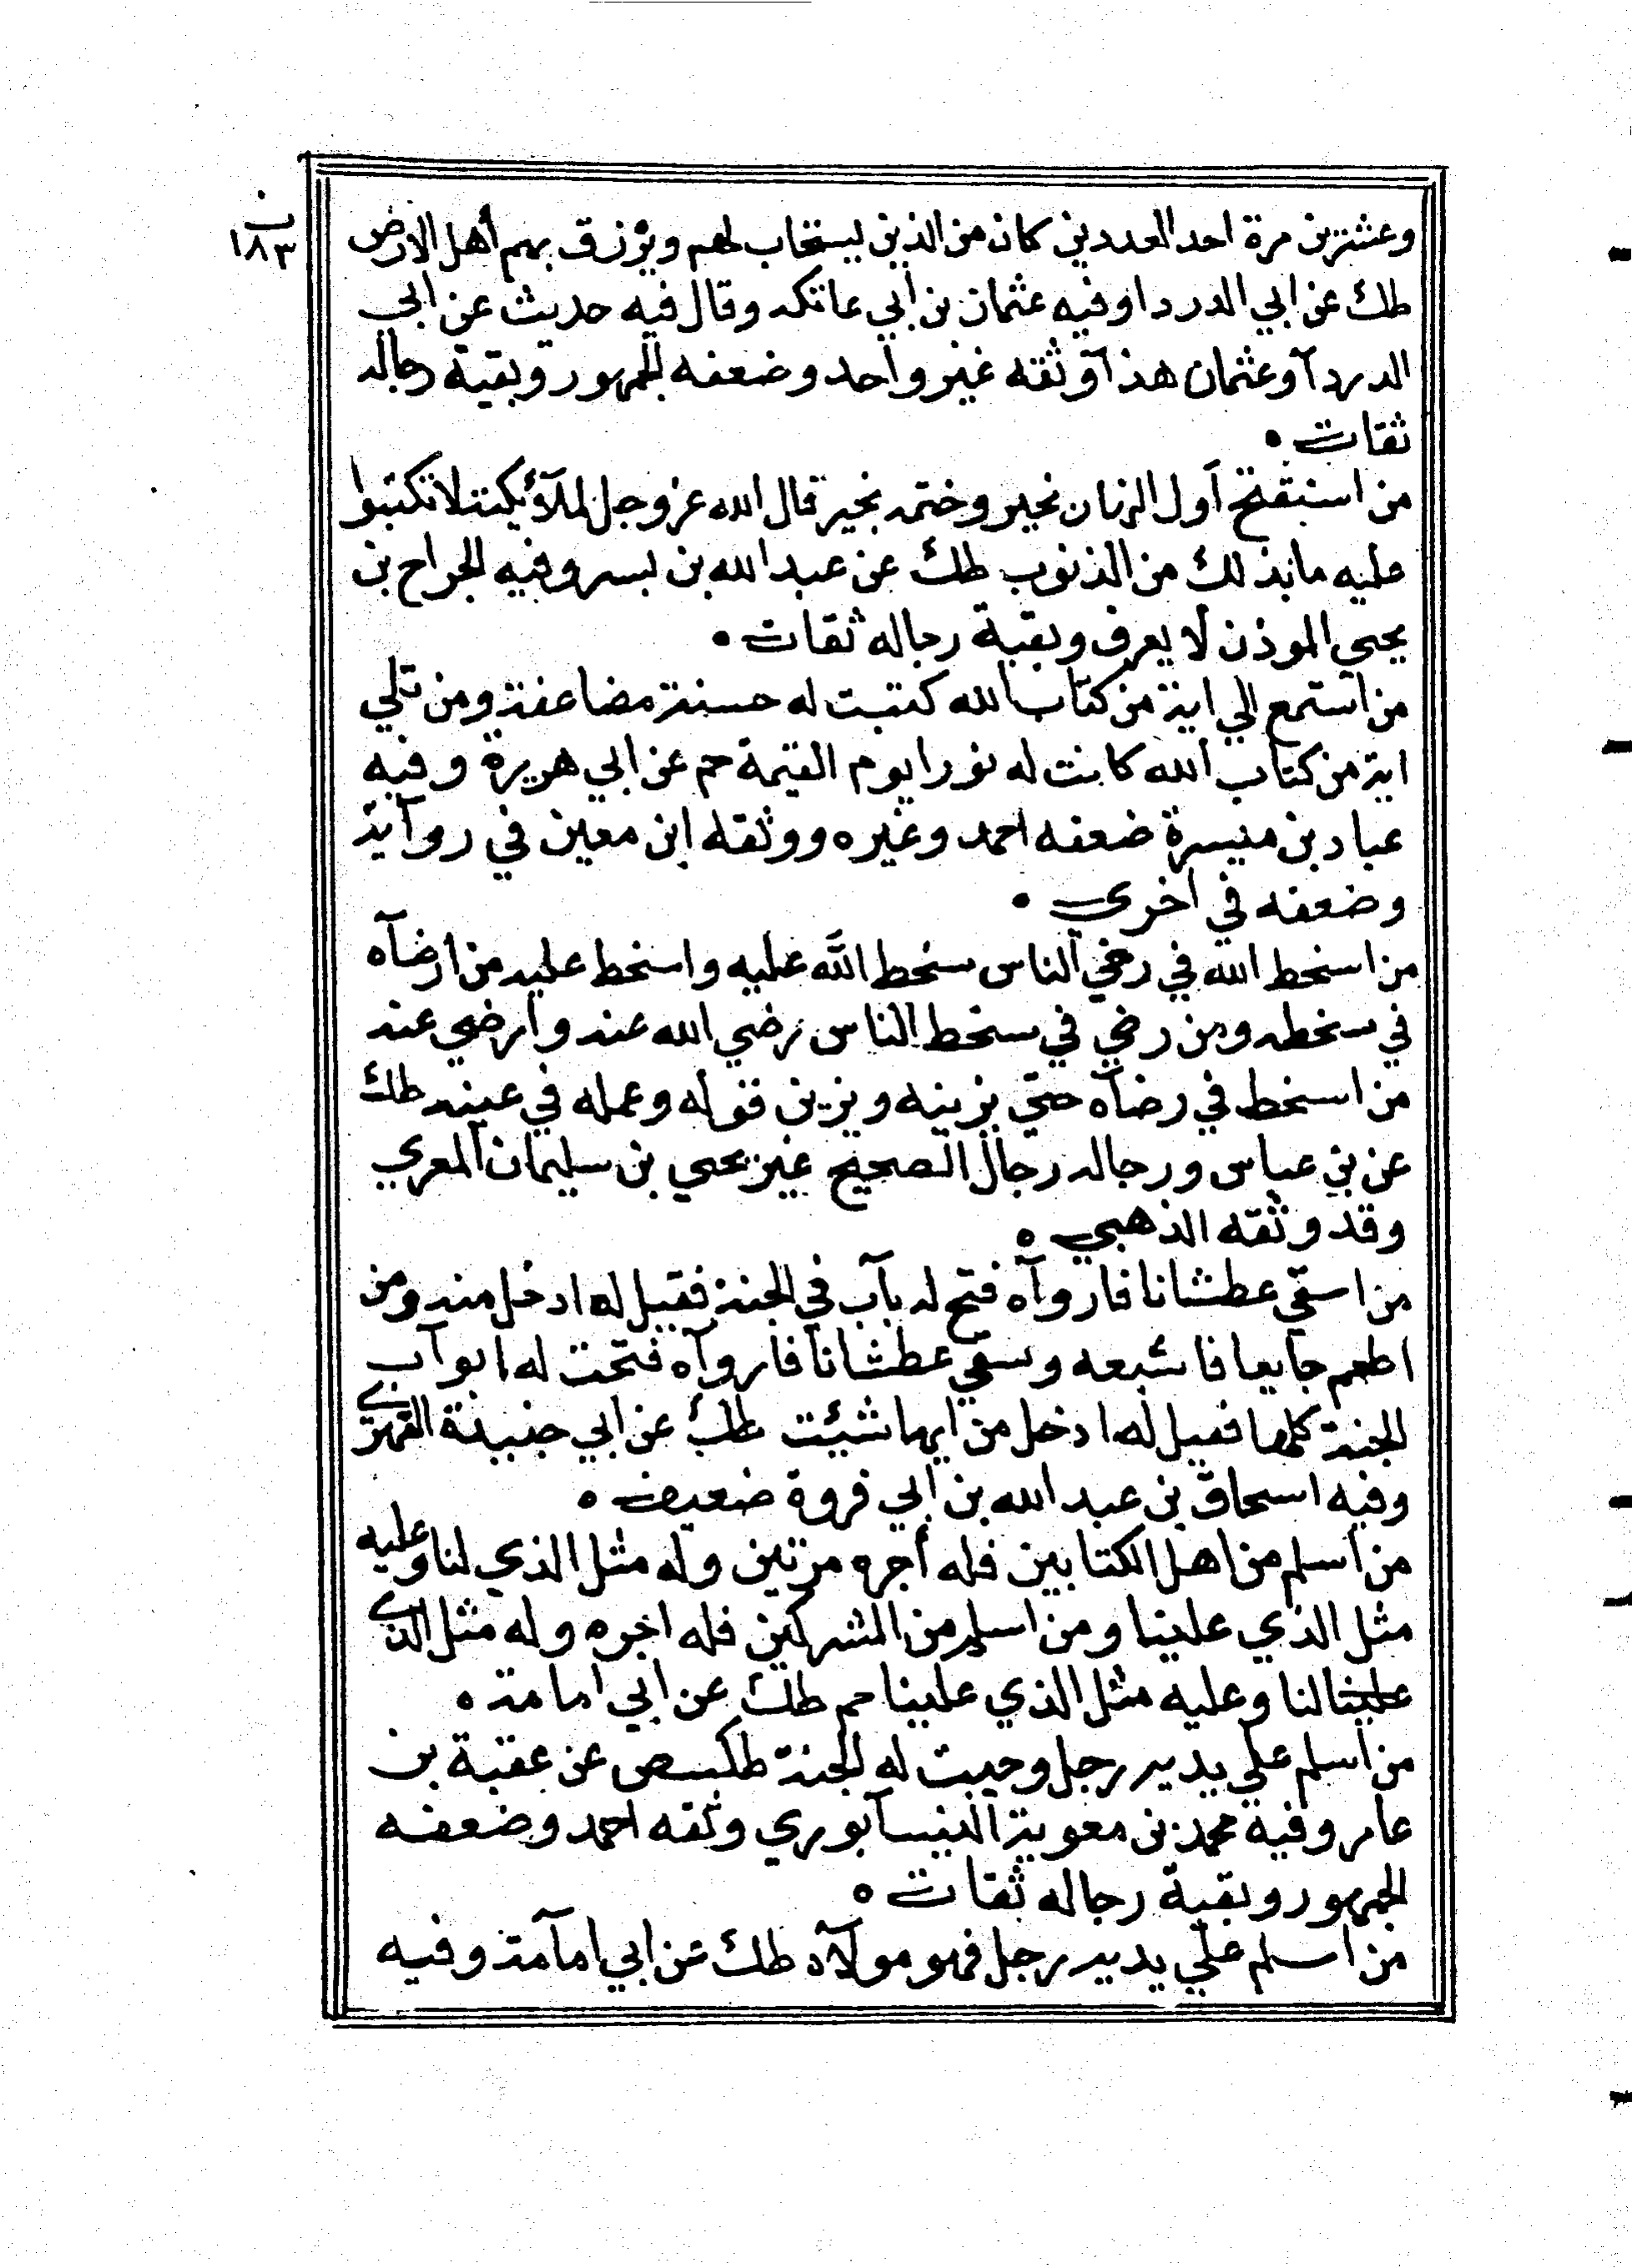 ن
١٨٣
وعشرين مرة احد العددين كان من الذين يستجاب لهم ويرزق بهم أهل الارض
طك عن ابي الدردا وفيه عثمان بن ابي عاتكه وقال فيه حديث عن ابي
الدردآ وعثمان هذا وثقه غير واحد وضعفه الجمهور وبقية رجاله
ثقات ٠
من استفتح أول النهار بخير وختمه بخير قال الله عز وجل لملآئكته لا تكتبوا
عليه مابذلك من الذنوب طك عن عبد الله بن بسر وفيه الجراح بن
يحيي الموذن لا يعرف وبقية رجاله ثقات ٠
من استمع الي اية من كتاب الله كتبت له حسنة مضاعفة ومن تلي
اية من كتاب الله كانت له نورا يوم القيمة حم عن ابي هريرة وفيه
عباد بن ميسرة ضعفه احمد وغيره ووثقه ابن معين في رواية
وضعفه في اخري ٠
من اسخط الله في رضي الناس سخط الله عليه واسخط عليه من ارضآه
في سخطه ومن رضي في سخط الناس رضي الله عنه وارضي عنه
من اسخط في رضآه حتي يزينه ويزين قوله وعمله في عينه طك
عن بن عباس ورجاله رجال الصحيح غير يحيي بن سليمان المعري
وقد وثقه الذهبي ٥
من اسقي عطشانا فاروآه فتح له بآب في الجنة فقيل له ادخل منه ومن
اطعم جايعا فاشبعه وسقي عطشانا فاروآه فتحت له ابوآب
الجنة كلها فقيل له ادخل من ايها شيئت طك عن ابي جنيدة الفهري
وفيه اسحاق بن عبد الله بن ابي فروة ضعيف ٥
من اسلم من اهل الكتابين فله أجره مرتين وله مثل الذي لنا وعليه
مثل الذي علينا ومن اسلم من المشركين فله اجره وله مثل الذي
علينا لنا وعليه مثل الذي علينا حم طك عن ابي امامة ٥
من اسلم علي يديه رجل وجبت له الجنة طكسص عن عقبة بن
عامر وفيه محمد بن معوية النيسآبوري وثقه احمد وضعفه
الجمهور وبقية رجاله ثقات ٥
من اسلم علي يديه رجل فهو مولاه طك عن ابي امآمة وفيه